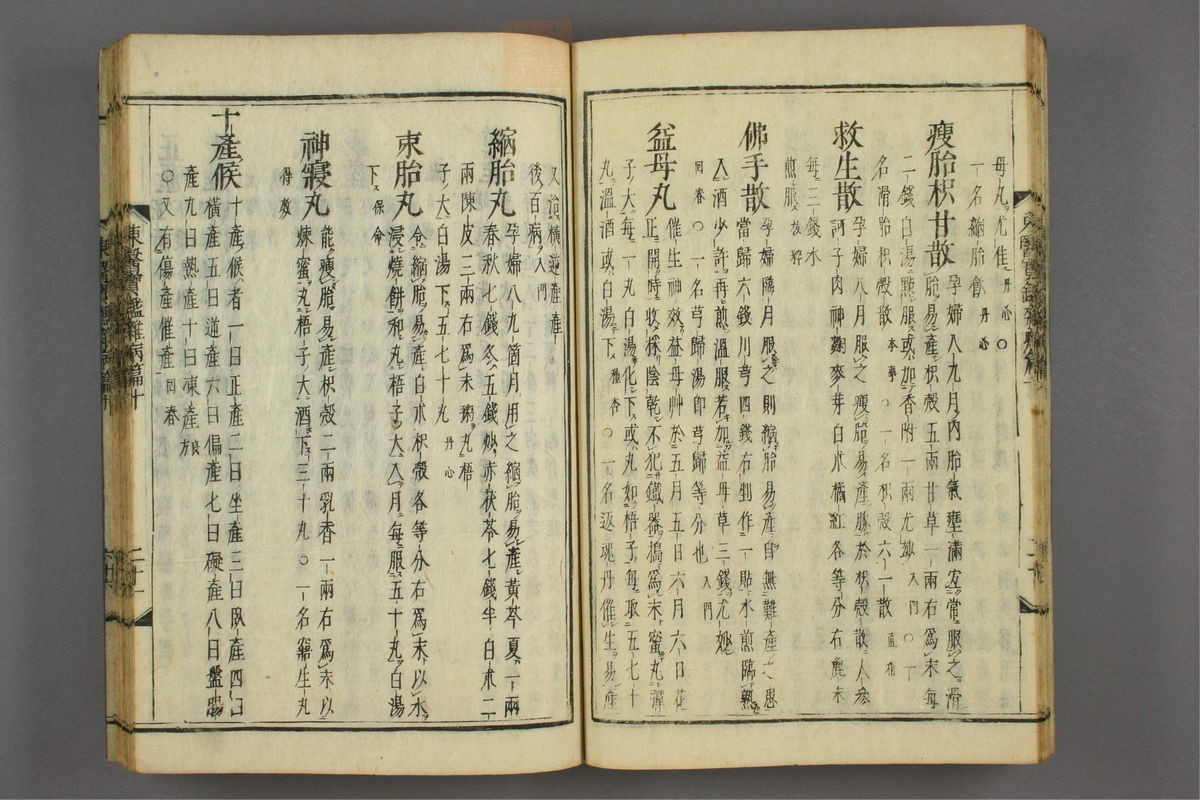 母丸尤佳丹心○
一名縮胎飮丹心
瘦胎枳甘散孕婦八九月內胎氣壅滿宜常服之滑
胎易產枳殼五兩甘草一兩右爲末每
二錢白湯點服或加香附一兩尤妙入門○一
名滑胎枳殼散本事○一名枳殼六一散直指
救生散孕婦八月服之瘦胎易產勝於枳殼散人參
訶子肉神麴麥芽白朮橘紅各等分右麁末
每三錢水
煎服拔粹
佛手散孕婦臨月服之則縮胎易產自無難產之患
當歸六錢川芎四錢右剉作一貼水煎臨熟
入酒少許再煎溫服若加益母草三錢尤妙
回春○一名芎歸湯卽芎歸等分也入門
益母丸催生神效益母艸於五月五日六月六日花
正開時收採陰乾不犯鐵器搗爲末蜜丸彈
子大每一丸白湯化下或丸如梧子每取五七十
丸溫酒或白湯下種杏○一名返魂丹催生易產
又治橫逆產
後百病入門
縮胎丸孕婦八九箇月用之縮胎易產黃芩夏一兩
春秋七錢冬五錢炒赤茯苓七錢半白朮二
兩陳皮三兩右爲末粥丸梧
子大白湯下五七十丸丹心
束胎丸令縮胎易產白朮枳殼各等分右爲末以水
浸燒餠和丸梧子大入月每服五十丸白湯
下保命
神寢丸能瘦胎易產枳殼二兩乳香一兩右爲末以
煉蜜丸梧子大酒下三十丸○一名寤生丸
得效
十產候十產候者一曰正產二曰坐產三曰臥產四曰
橫產五曰逆產六曰偏產七曰礙產八曰盤腸
產九曰熱產十曰凍產良方
○又有傷產催產回春
東醫寶鑑雜病篇十
二十一